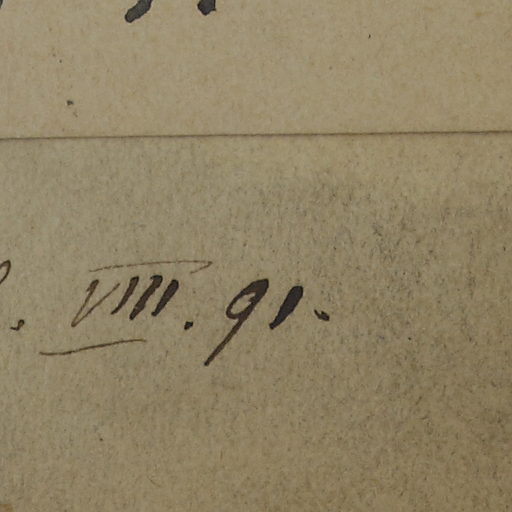 . VIII. 91.